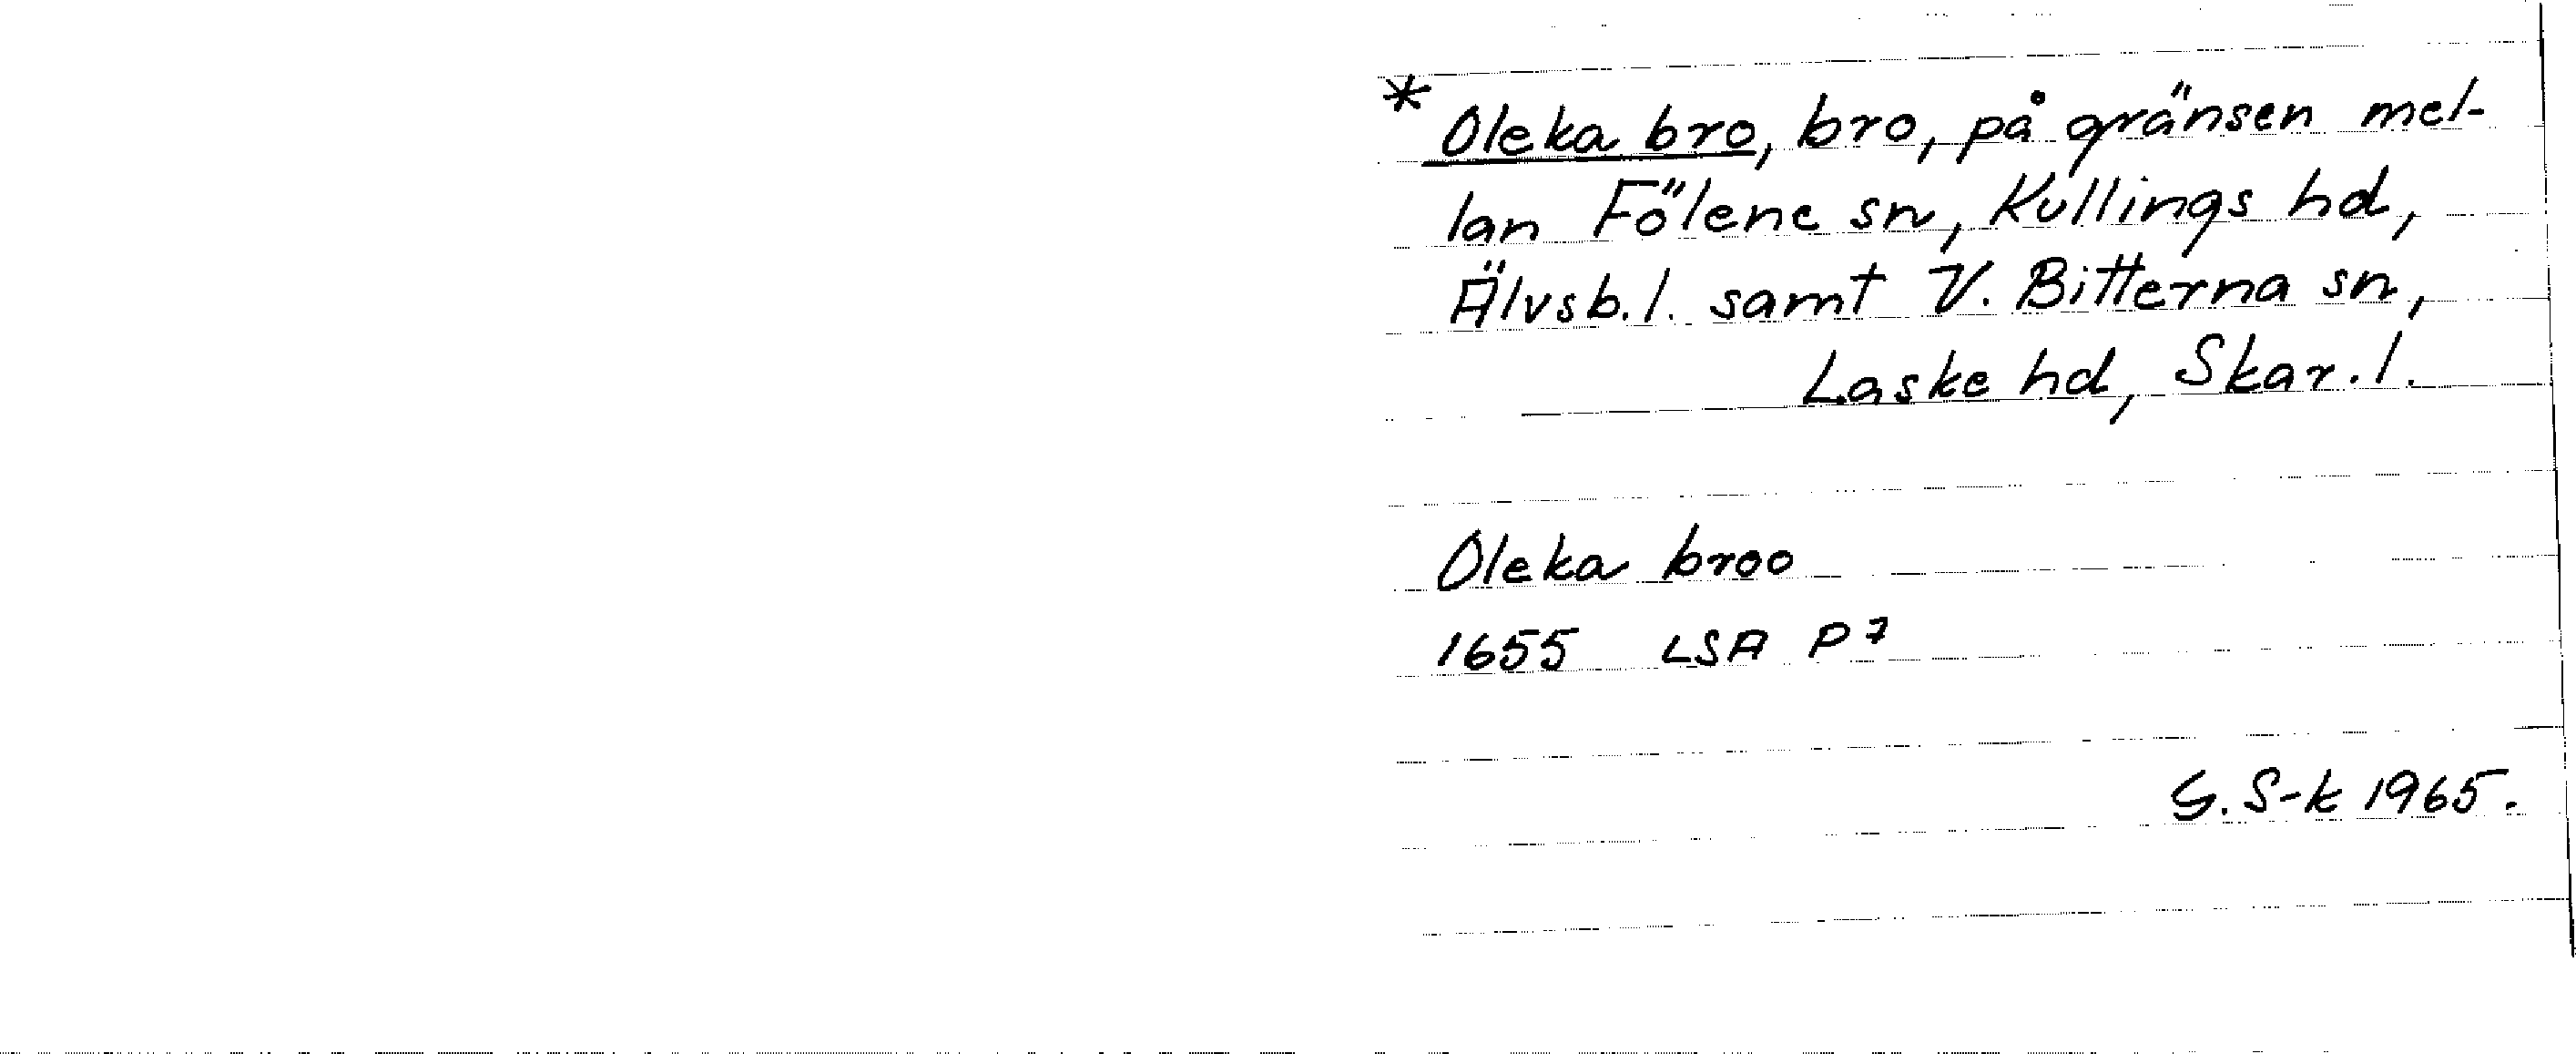 * Oleka bro, bro, på gränsen mel-
lan Fölene sn, Kullings hd,
Älvsb. l. samt V. Bitterna sn,
Laske hd, Skar. l.
Oleka broo
1655 LSA P 7
G. S-k 1965.